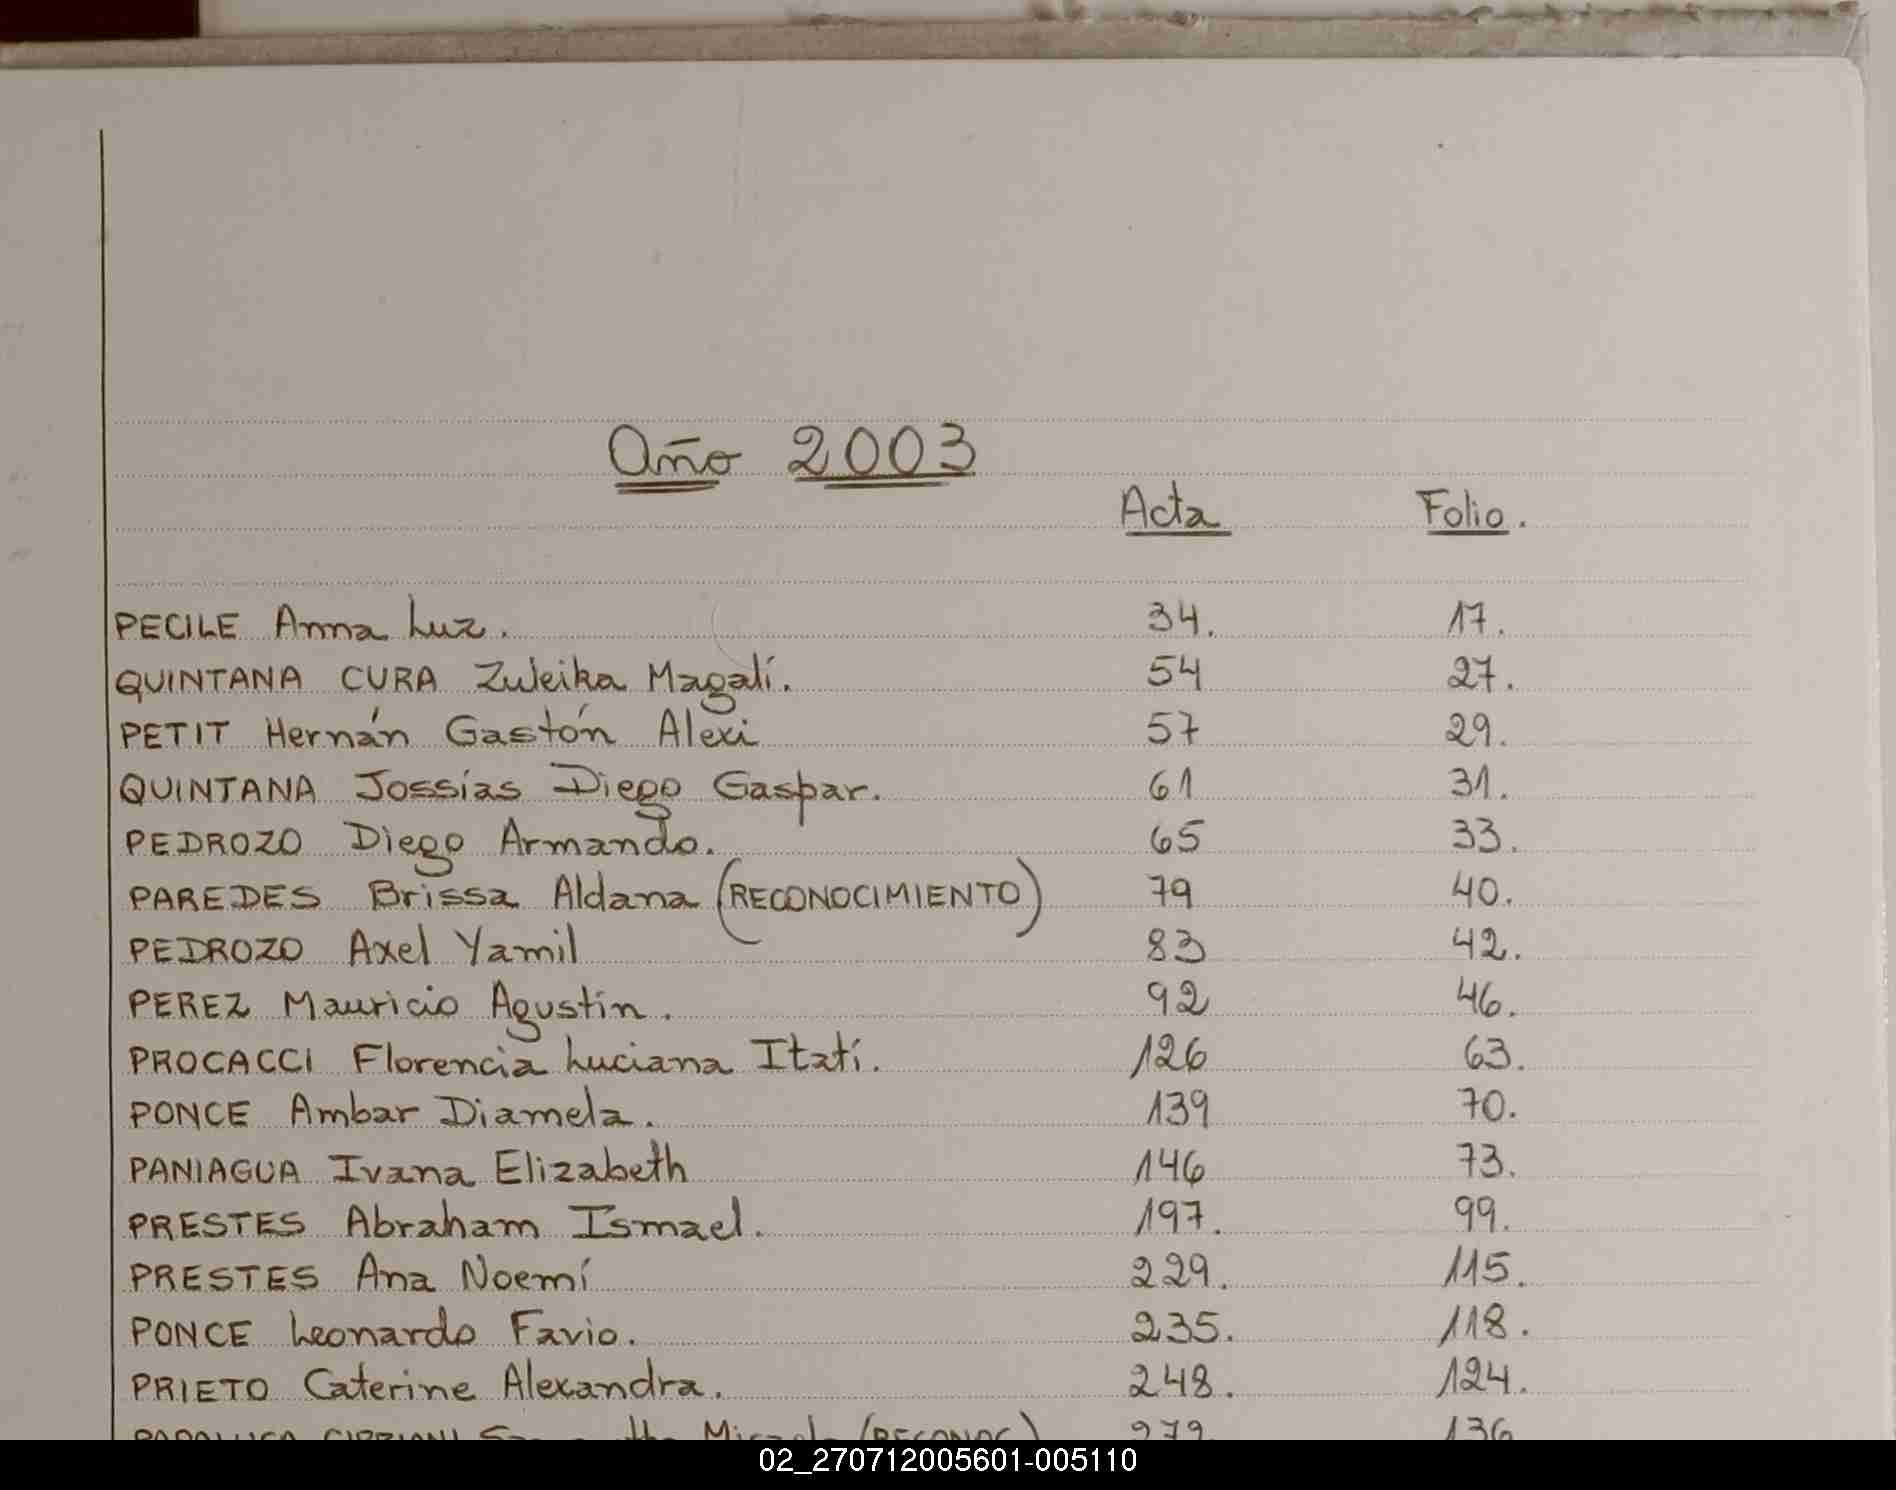 Año 2003
Acta Folio.
PECILE Anna Luz. 34. 17.
QUINTANA CURA Zuleika Magalí. 54 27.
PETIT Hernán Gastón Alexi 57 29.
QUINTANA Jossías Diego Gaspar. 61 31.
PEDROZO Diego Armando. 65 33.
PAREDES Brissa Aldana (RECONOCIMIENTO) 79 40.
PEDROZO Axel Yamil 83 42.
PEREZ Mauricio Agustín. 92 46.
PROCACCI Florencia Luciana Itatí. 126 63.
PONCE Ambar Diamela. 139 70.
PANIAGUA Ivana Elizabeth 146 73.
PRESTES Abraham Ismael. 197. 99.
PRESTES Ana Noemí 229. 115.
PONCE Leonardo Favio. 235. 118.
PRIETO Caterine Alexandra. 248. 124.
CIPRIANI (RECONOC) 136
02_270712005601-005110